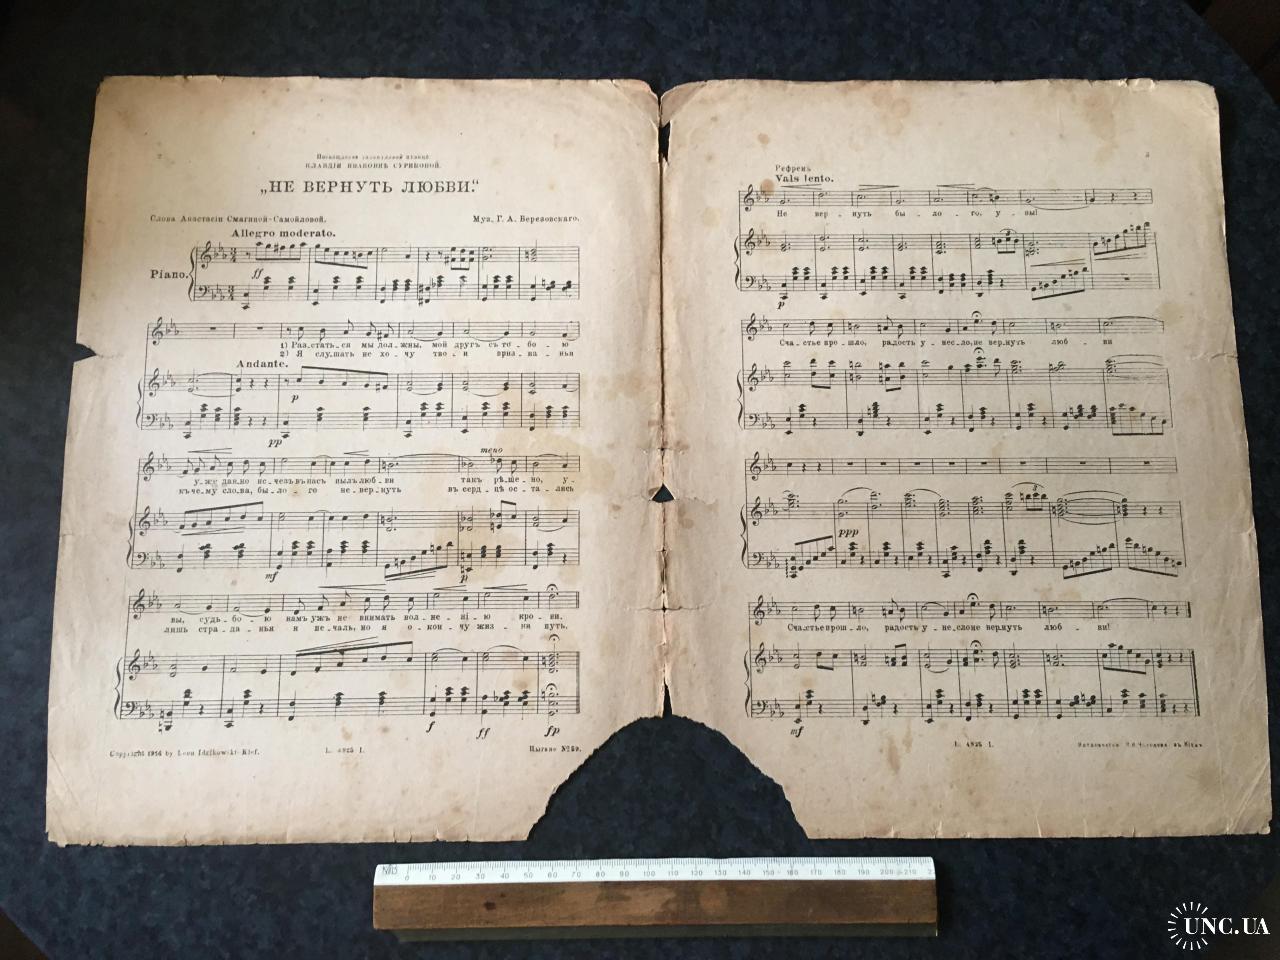 2
КЛАВДІИ ИВАНОВНѢ СУРИКОВОЙ.
„НЕ ВЕРНУТЬ ЛЮБВИ.“
Слова Анастасіи Смагиной-Самойловой.
Муз. Г. А. Березовскаго.
Allegro moderato.
Piano.
ff
1) Раз_стать_ся мы дол_жны, мой другъ съ то_бо_ю
2) Я слу_шать не хо_чу тво_и приз_на_нья
Andante.
p
pp
meno
у_жъ дав_но ис_чезъ въ насъ пылъ люб_ви такъ рѣ_ше_но, у_
къ че_му сло_ва, бы_ло_го не_вер_нуть въ серд_цѣ ос_та_лись
mf
p
вы, судь_бо_ю намъ ужъ не внимать вол_не_нію кро_ви.
лишь стра_да_нья и пе_чаль, но я о_кон_чу жиз_ни путь.
f
ff
fp
Copyright 1914 by Leon Idzikowski Kief.
L. 4825 I.
Цыгане №89.
3
Рефренъ
Vals lento.
Не вер_нуть бы_ло_го, у_вы!
p
Сча_стье про_шло, радость у_нес_ло, не вер_нуть люб_ви
ppp
3
Сча_стье прош_ло, радость у_не_сло не вер_нуть люб_ви!
mf
L. 4825 I.
въ Кіевѣ
0 10 20 30 40 50 60 70 80 90 100 110 120 130 140 150 160 170 180 190 200 210
UNC.UA